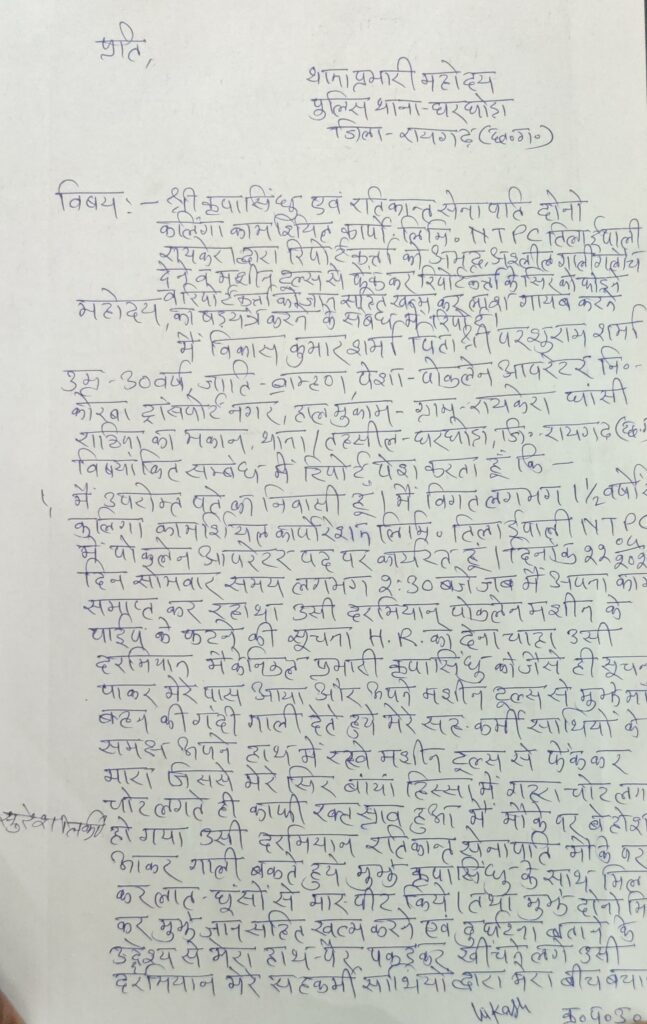 प्रति,
थाना प्रभारी महोदय
पुलिस थाना - घरघोडा
जिला - रायगढ़ (छ.ग.)
विषय :- श्री कृपासिंधु एवं रतिकान्त सेनापति दोनो
कलिंगा कामर्शियल कार्पो. लिमि. NTPC तिलाईपाली
रायकेरा द्वारा रिपोर्टकर्ता को अभद्र, अश्लील गाली गलौच
देने व मशीन टूल्स से फेंककर रिपोर्टकर्ता के सिर को फोड़ने
व रिपोर्टकर्ता को जान सहित खत्म कर लाश गायब करने
महोदय, का षडयंत्र करने के संबंध में रिपोर्ट।
मैं विकास कुमार शर्मा पिता श्री परशुराम शर्मा
उम्र - 30 वर्ष, जाति - ब्राम्हण, पेशा - पोकलेन आपरेटर नि.-
कोरबा ट्रांसपोर्ट नगर, हाल मुकाम - ग्राम - रायकेरा घांसी
का मकान, थाना/तहसील - घरघोडा, जि. - रायगढ़ (छ.ग.
विषयांकित सम्बंध में रिपोर्ट पेश करता हूँ कि -
1, मैं उपरोक्त पते का निवासी हूँ। मैं विगत लगभग 1½ वर्षो से
कलिंगा कामर्शियल कार्पोरेशन लिमि. तिलाईपाली NTPC
में पोकलेन आपरेटर पद पर कार्यरत हूं। दिनांक 22
दिन सोमवार समय लगभग 2:30 बजे जब मैं अपना काम
समाप्त कर रहा था उसी दरमियान पोकलेन मशीन के
पाईप के फटने की सूचना H.R. को देना चाहा उसी
दरमियान मैकेनिकल प्रभारी कृपासिंधु को जैसे ही सूचन
पाकर मेरे पास आया और अपने मशीन टूल्स से मुझे मां
बहन की गंदी गाली देते हुये मेरे सह-कर्मी साथियों के
समक्ष अपने हाथ में रखे मशीन टूल्स से फेंककर
मारा जिससे मेरे सिर बांया हिस्सा में गहरा चोट लगा
चोट लगते ही काफी रक्त स्त्राव हुआ मैं मौके पर बेहोश
हो गया उसी दरमियान रतिकान्त सेनापति मौके पर
आकर गाली बकते हुये मुझे कृपासिंधु के साथ मिल
कर लात-घूंसों से मार-पीट किये। तथा मुझे दोनो मि
कर, मुझे जान सहित खत्म करने एवं दुर्घटना बताने के
उद्देश्य से मेरा हाथ-पैर पकड़कर खींचने लगे उसी
दरमियान मेरे सहकर्मी साथियों द्वारा मेरा बीच बचा
Vikash
क.प.उ.